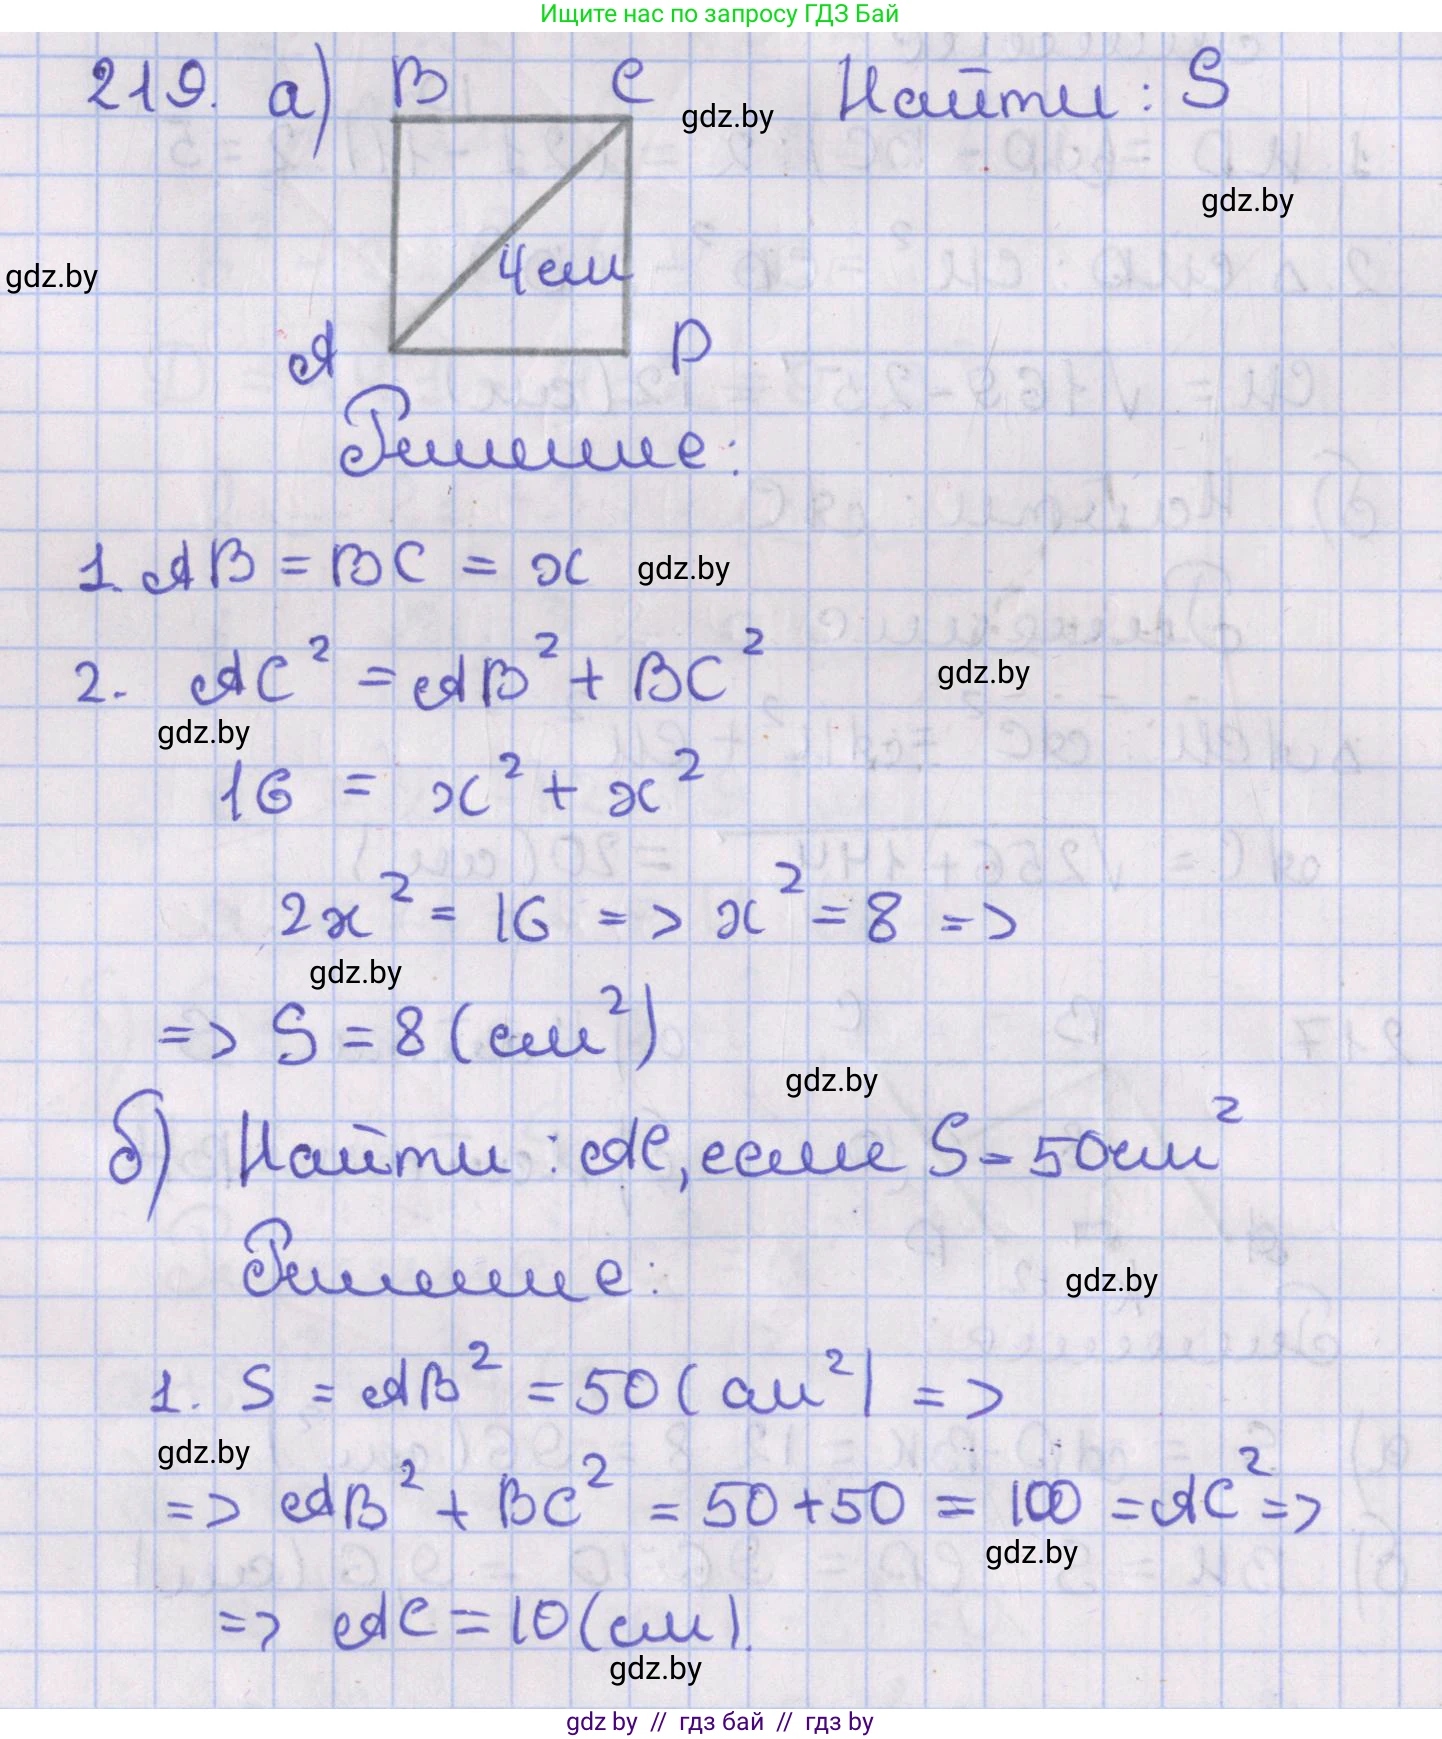 Ищите нас по запросу ГДЗ Бай
219. а) B C Найти : S
gdz.by
gdz.by
gdz.by
4см
A D
Решение:
1. AB = BC = x gdz.by
2. AC² = AB² + BC²
gdz.by
gdz.by
16 = x² + x²
2x² = 16 => x² = 8 =>
gdz.by
=> S = 8 (см²)
gdz.by
б) Найти : AC, если S = 50см²
Решение:
gdz.by
1. S = AB² = 50 (см²) =>
gdz.by
=> AB² + BC² = 50 + 50 = 100 = AC² =>
gdz.by
=> AC = 10 (см).
gdz.by
gdz by // гдз бай // гдз by